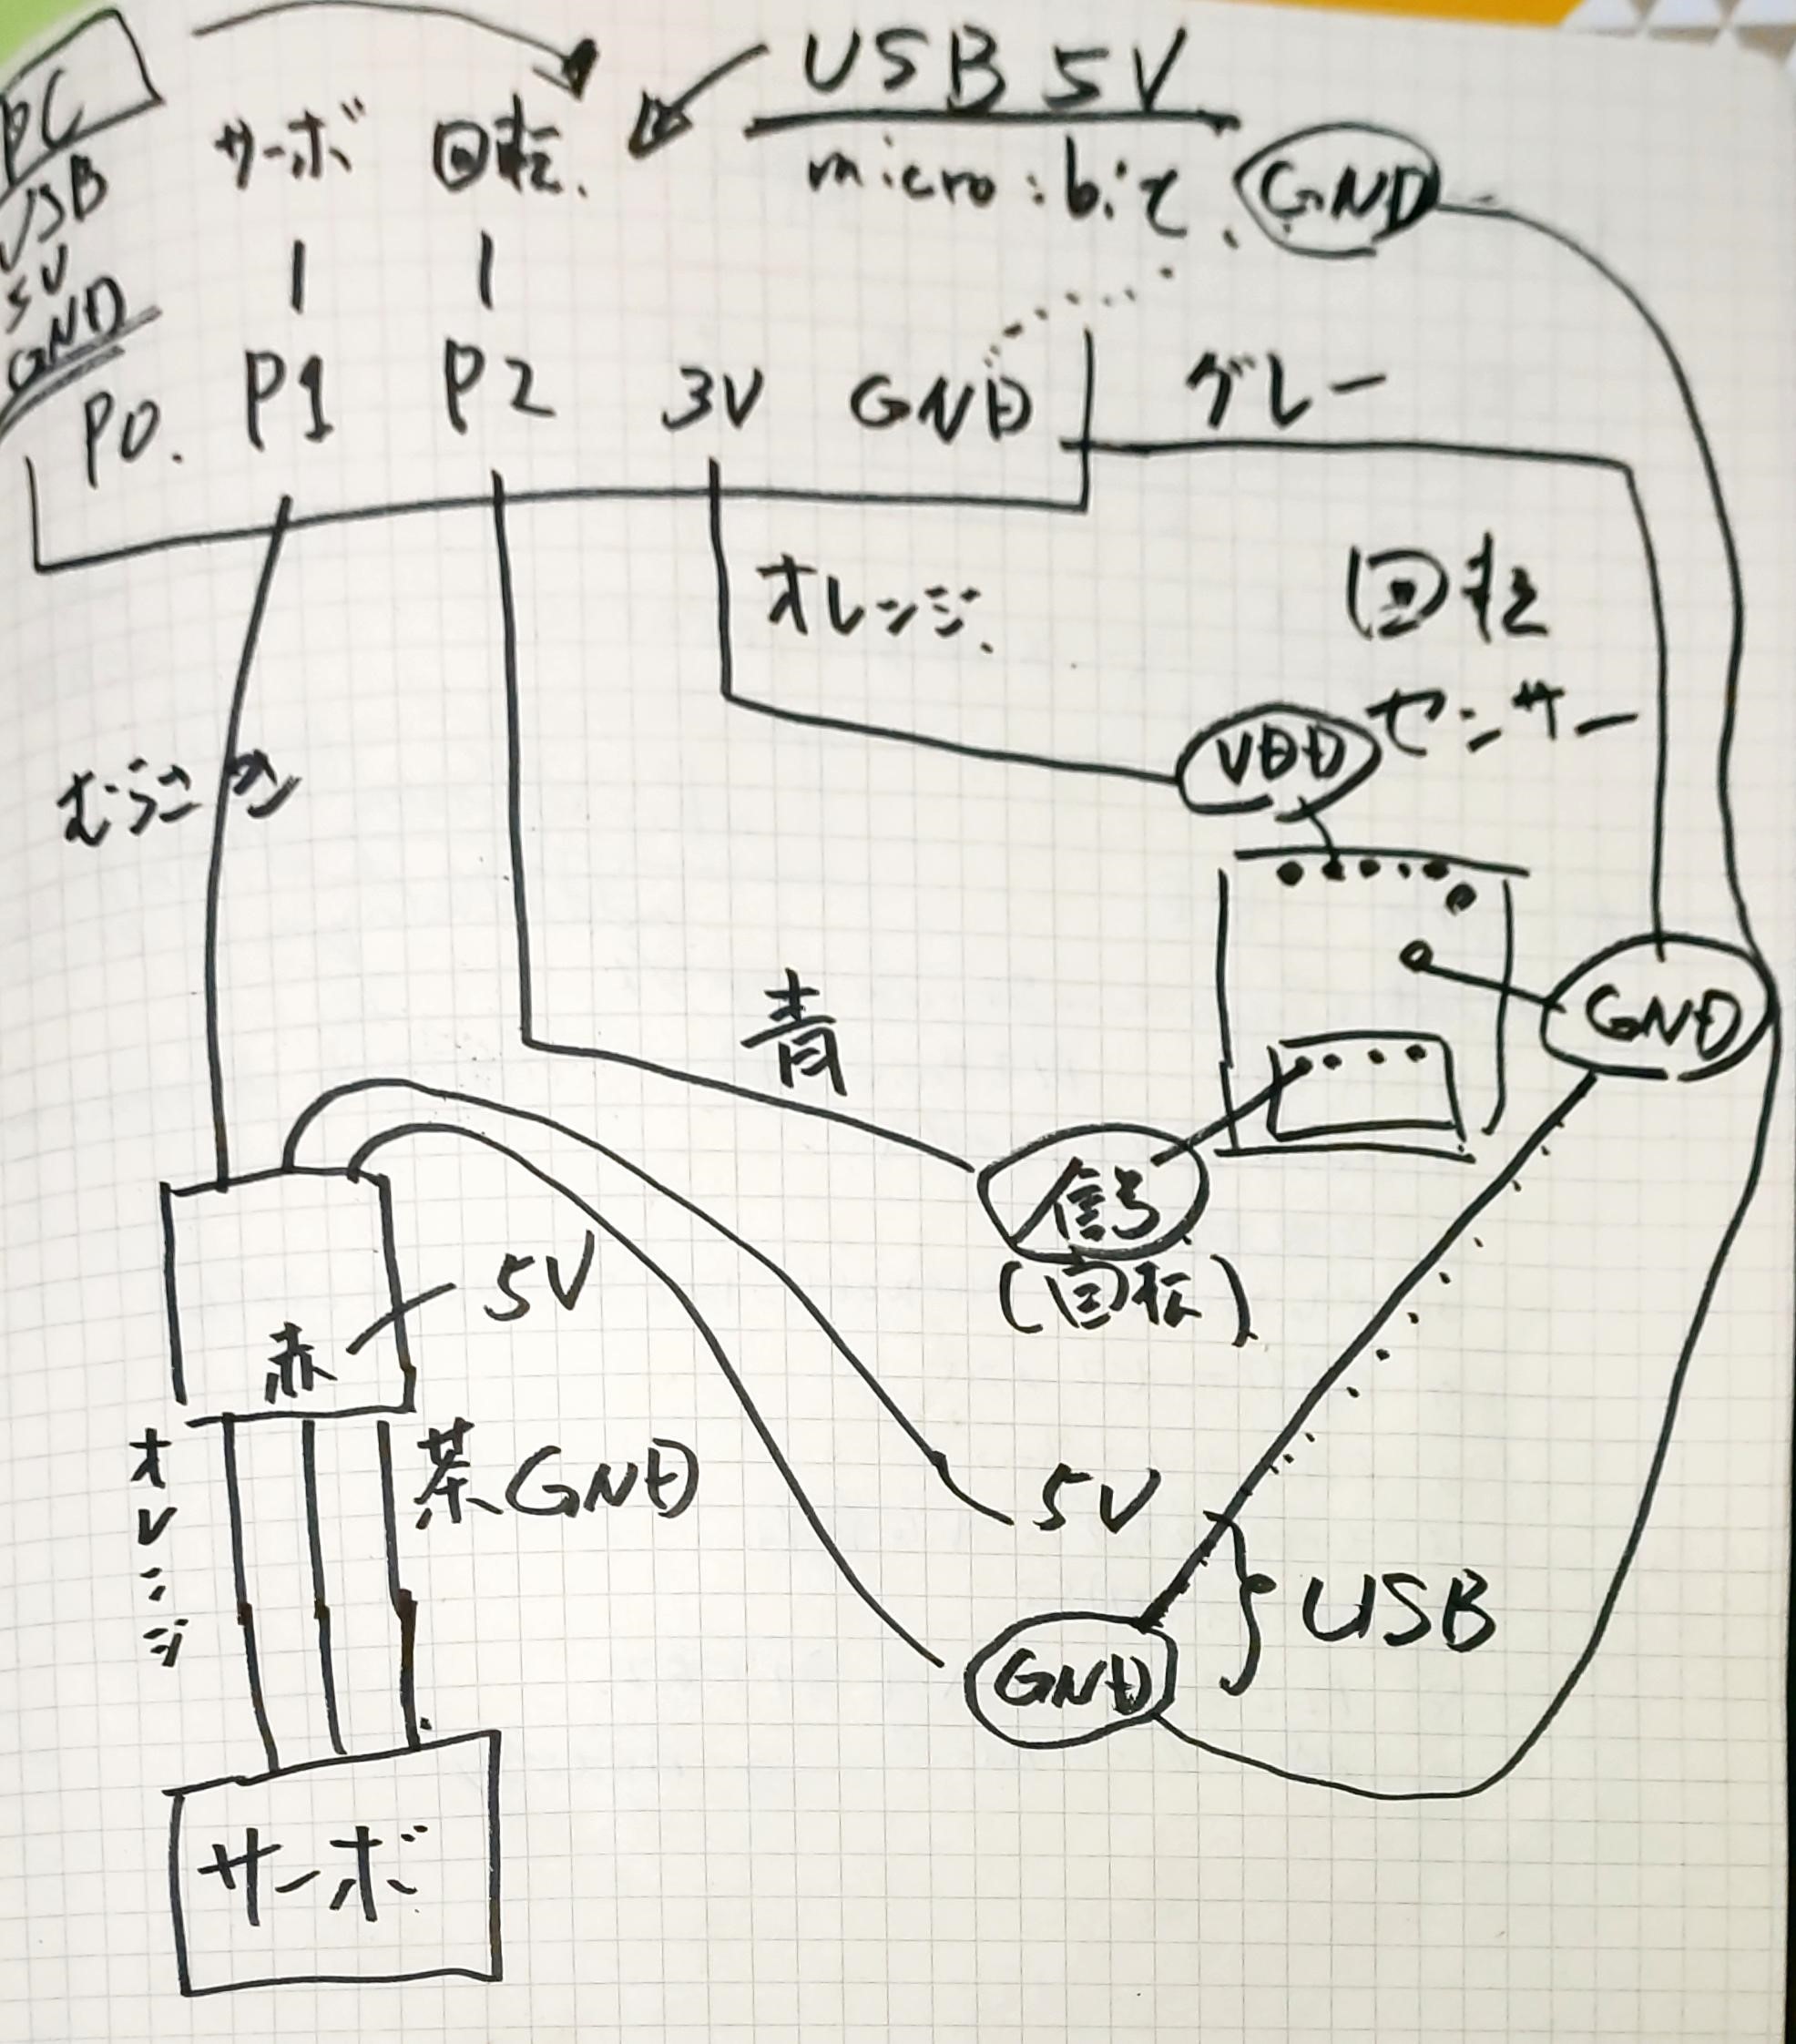 PC
USB
5V
GND
サーボ
回転.
USB 5V
micro:bit.
GND
P0.
P1
P2
3V
GND
グレー
オレンジ.
回転
センサー
VDD
むらさき
青
GND
信号
(回転)
5V
赤
オレンジ
茶 GND
5V
GND
USB
サーボ